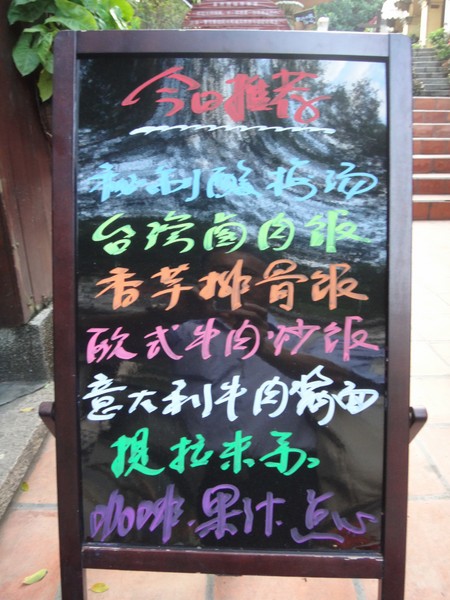 今日推荐
秘制酸梅汤
台湾卤肉饭
香芋排骨饭
欧式牛肉炒饭
意大利牛肉焗面
提拉米苏
咖啡.果汁.点心